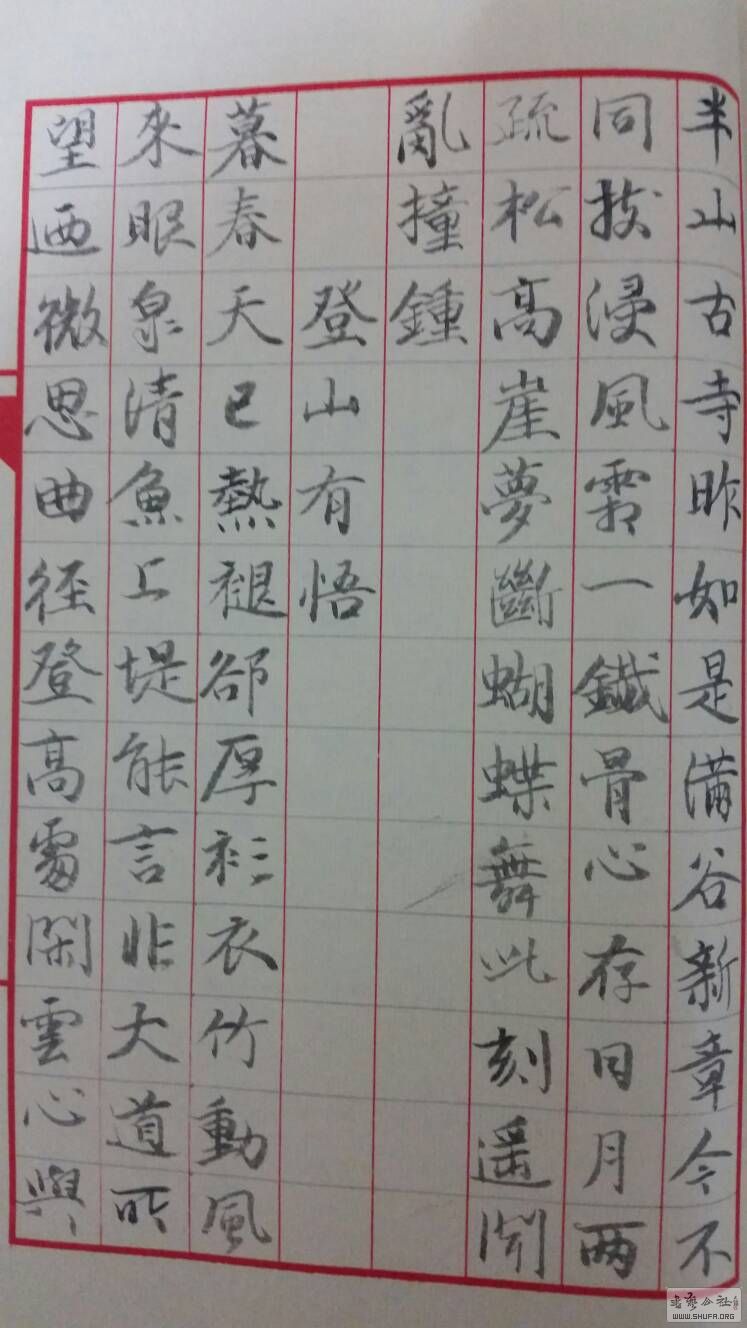 半山古寺昨如是滿谷新章今不
同披浸風霜一鐵骨心存日月两
疏松高崖夢斷蝴蝶舞此刻遥聞
亂撞鍾
登山有悟
暮春天已熱褪卻厚衫衣竹動風
來眼泉清魚上堤能言非大道所
望迺微思曲徑登高處閑雲心與
書藝公社
WWW.SHUFA.ORG